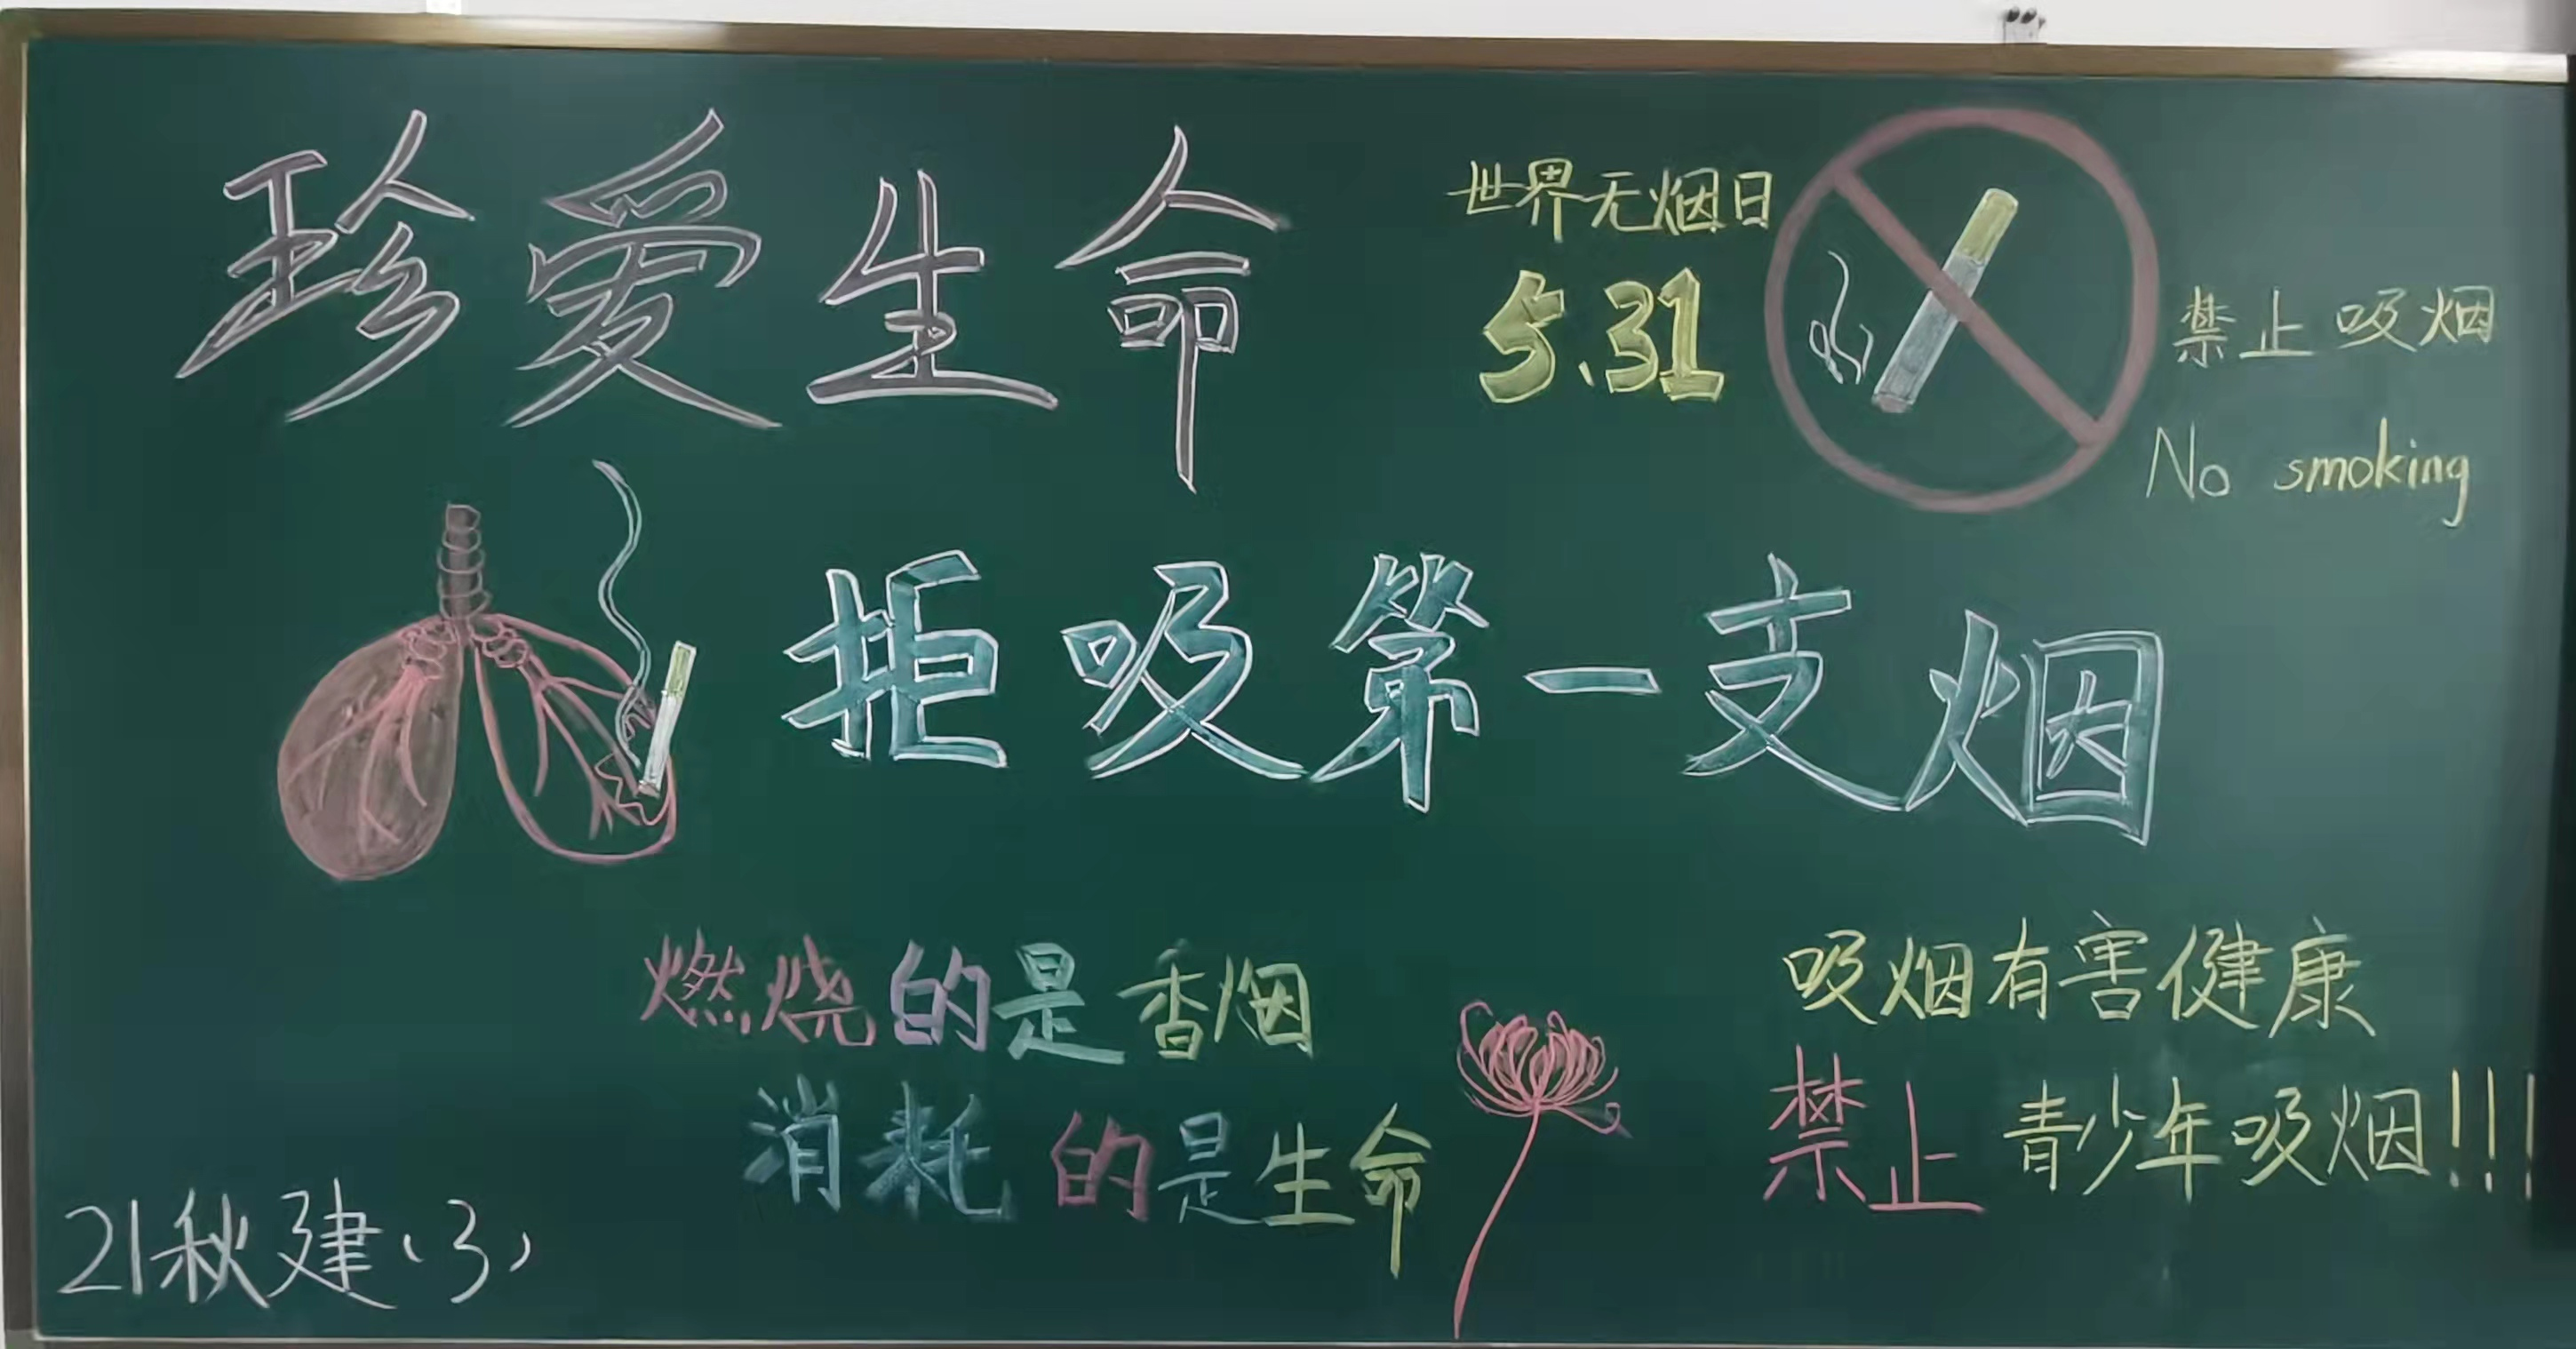 珍爱生命
世界无烟日
5.31
禁止吸烟
No smoking
拒吸第一支烟
燃烧的是香烟
消耗的是生命
吸烟有害健康
禁止青少年吸烟!!!
21秋建(3)